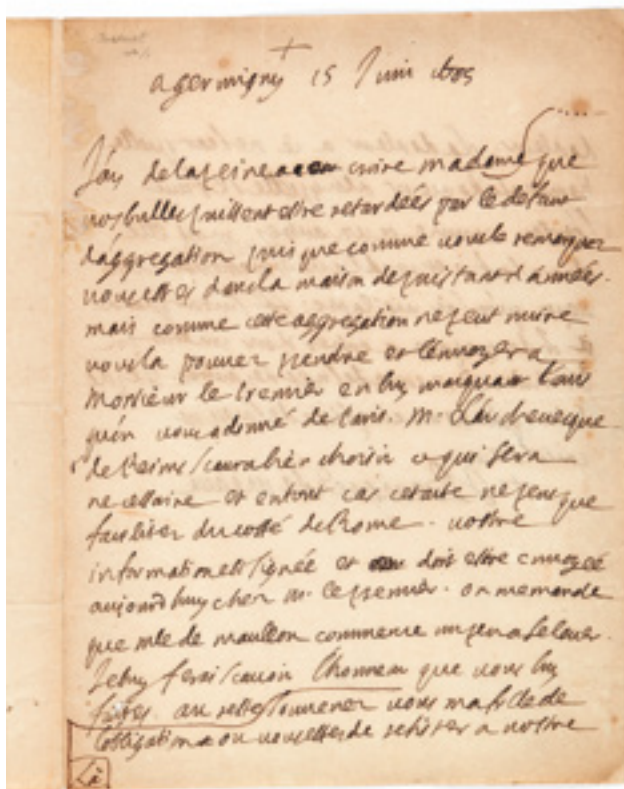 a germigny 15 Juin
J'ay de la peine a croire madame que
vos bulles puissent estre retardées par le defaut
d'aggregation puis que comme vous le remarquez
vous estes dans la maison depuis tant d'années.
mais comme cette aggregation ne peut nuire
vous la pouvez prendre et l'envoyer a
Monsieur le premier en luy marquant l'avis
qu'on vous a donné de Paris. M. L'archevesque
de Reims scaura bien choisir ce qui sera
necessaire et en tout cas cet acte ne peut que
faciliter du costé de Rome. vostre
information est signée et doit estre envoyée
aujourdhuy chez M. le premier. on me mande
que mlle de mauleon commence un peu a se lever.
Je luy ferai scavoir l'honneur que vous luy
faites. au reste souvenez vous ma fille de
l'obligation ou vous estes de resister a vostre